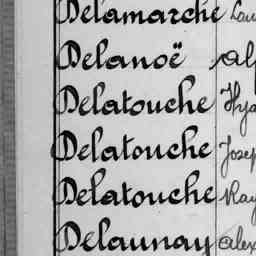 Delamarche Lou
Delanoë Alf
Delatouche Hya
Delatouche Josep
Delatouche Ray
Delaunay Alex